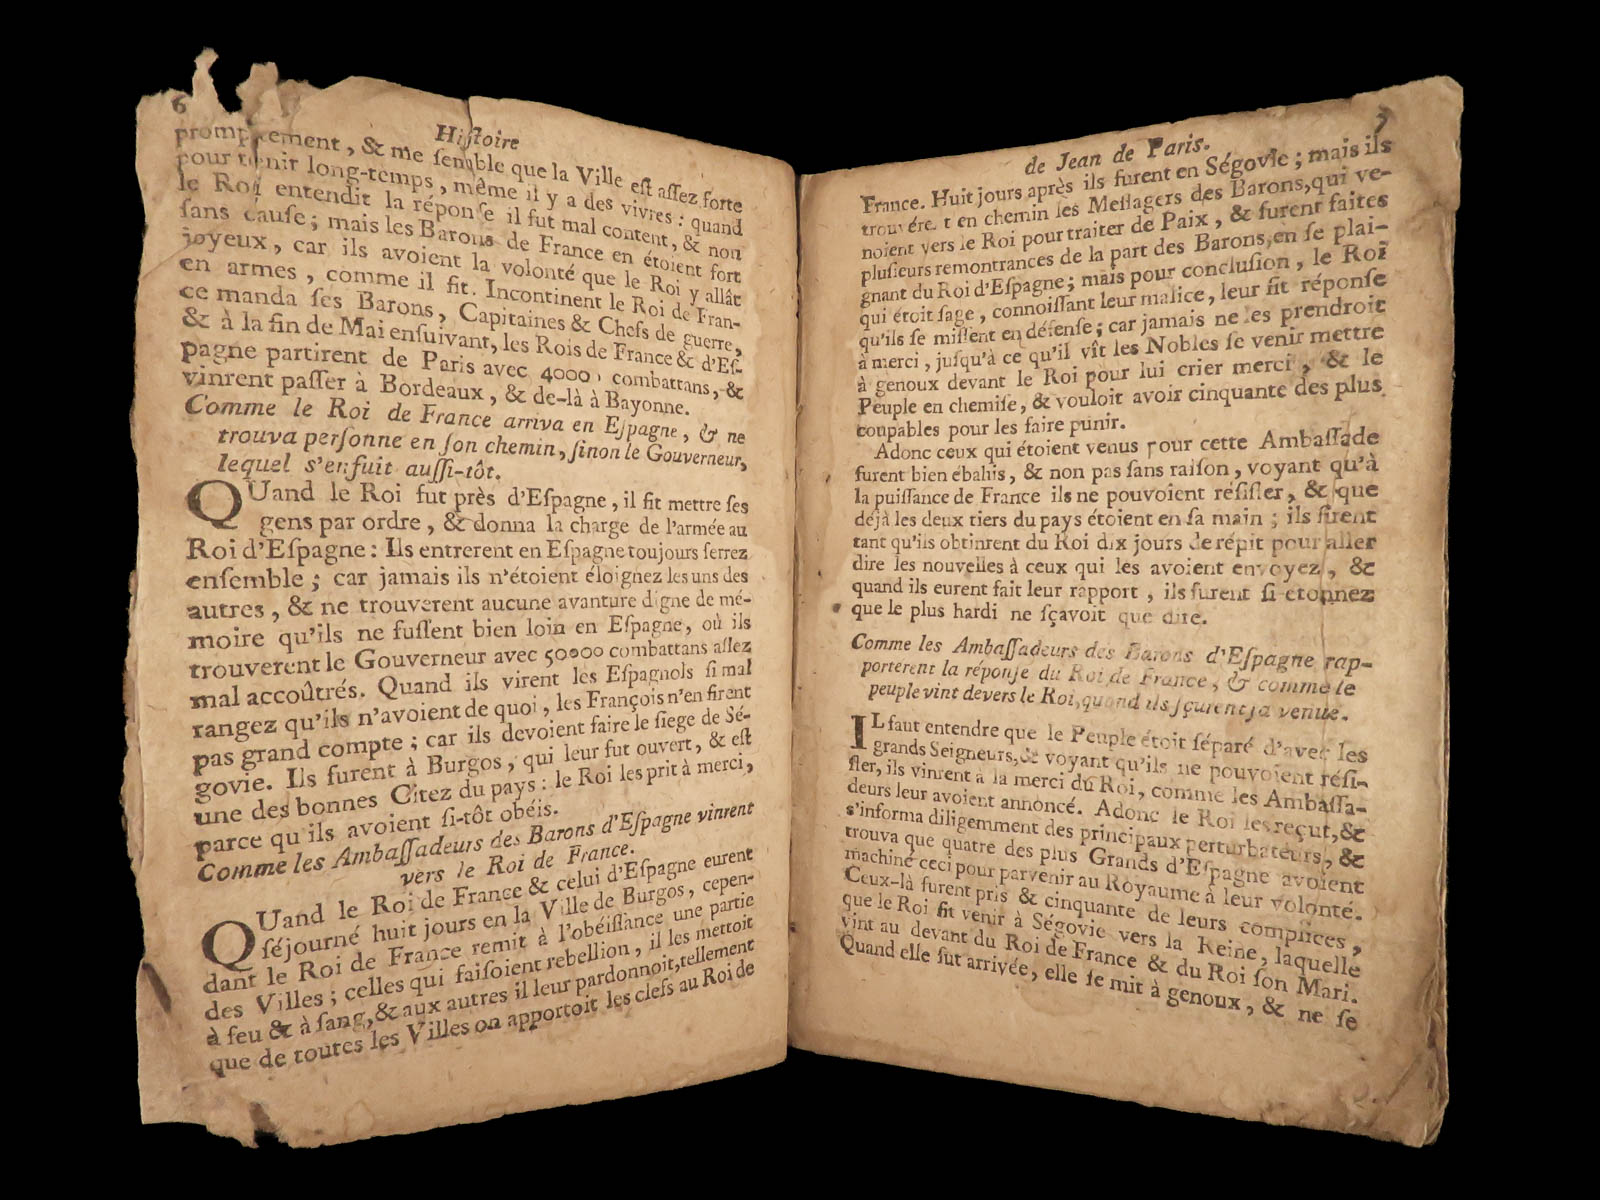 6
Hiſtoire
promptement, & me ſemble que la Ville eſt aſſez forte
pour tenir long-temps, même il y a des vivres : quand
le Roi entendit la réponſe il fut mal content, & non
ſans cauſe ; mais les Barons de France en étoient fort
joyeux, car ils avoient la volonté que le Roi y allât
en armes, comme il fit. Incontinent le Roi de Fran-
ce manda ſes Barons, Capitaines & Chefs de guerre,
& à la fin de Mai enſuivant, les Rois de France & d'Eſ-
pagne partirent de Paris avec 4000 combattans, &
vinrent paſſer à Bordeaux, & de-là à Bayonne.
Comme le Roi de France arriva en Eſpagne, & ne
trouva perſonne en ſon chemin, ſinon le Gouverneur,
lequel s'enfuit auſſi-tôt.
QUand le Roi fut près d'Eſpagne, il fit mettre ſes
gens par ordre, & donna la charge de l'armée au
Roi d'Eſpagne : Ils entrerent en Eſpagne toujours ſerrez
enſemble ; car jamais ils n'étoient éloignez les uns des
autres, & ne trouverent aucune avanture digne de mé-
moire qu'ils ne fuſſent bien loin en Eſpagne, où ils
trouverent le Gouverneur avec 50000 combattans aſſez
mal accoûtrés. Quand ils virent les Eſpagnols ſi mal
rangez qu'ils n'avoient de quoi, les François n'en firent
pas grand compte ; car ils devoient faire le ſiege de Sé-
govie. Ils furent à Burgos, qui leur fut ouvert, & eſt
une des bonnes Citez du pays : le Roi les prit à merci,
parce qu'ils avoient ſi-tôt obéis.
Comme les Ambaſſadeurs des Barons d'Eſpagne vinrent
vers le Roi de France.
QUand le Roi de France & celui d'Eſpagne eurent
ſéjourné huit jours en la Ville de Burgos, cepen-
dant le Roi de France remit à l'obéiſſance une partie
des Villes ; celles qui faiſoient rebellion, il les mettoit
à feu & à ſang, & aux autres il leur pardonnoit, tellement
que de toutes les Villes on apportoit les clefs au Roi de
de Jean de Paris.
France. Huit jours après ils furent en Ségovie ; mais ils
trouvére t en chemin les Meſſagers des Barons, qui ve-
noient vers le Roi pour traiter de Paix, & furent faites
pluſieurs remontrances de la part des Barons, en ſe plai-
gnant du Roi d'Eſpagne ; mais pour concluſion, le Roi
qui étoit ſage, connoiſſant leur malice, leur fit réponſe
qu'ils ſe miſſent en défenſe ; car jamais ne les prendroit
à merci, juſqu'à ce qu'il vît les Nobles ſe venir mettre
à genoux devant le Roi pour lui crier merci, & le
Peuple en chemiſe, & vouloit avoir cinquante des plus
coupables pour les faire punir.
Adonc ceux qui étoient venus pour cette Ambaſſade
furent bien ébahis, & non pas ſans raiſon, voyant qu'à
la puiſſance de France ils ne pouvoient réſiſter, & que
déjà les deux tiers du pays étoient en ſa main ; ils firent
tant qu'ils obtinrent du Roi dix jours de répit pour aller
dire les nouvelles à ceux qui les avoient envoyez, &
quand ils eurent fait leur rapport, ils furent ſi étonnez
que le plus hardi ne ſçavoit que dire.
Comme les Ambaſſadeurs des Barons d'Eſpagne rap-
porterent la réponſe du Roi de France, & comme le
peuple vint devers le Roi, quand ils ſçurent ſa venue.
IL faut entendre que le Peuple étoit ſéparé d'avec les
grands Seigneurs, & voyant qu'ils ne pouvoient réſi-
ſter, ils vinrent à la merci du Roi, comme les Ambaſſa-
deurs leur avoient annoncé. Adonc le Roi les reçut, &
s'informa diligemment des principaux perturbateurs, &
trouva que quatre des plus Grands d'Eſpagne avoient
machiné ceci pour parvenir au Royaume à leur volonté.
Ceux-là furent pris & cinquante de leurs complices,
que le Roi fit venir à Ségovie vers la Reine, laquelle
vint au devant du Roi de France & du Roi ſon Mari.
Quand elle fut arrivée, elle ſe mit à genoux, & ne ſe